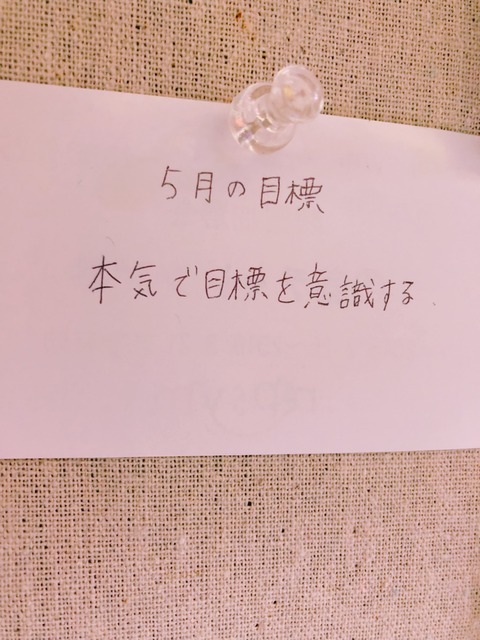 5月の目標
本気で目標を意識する